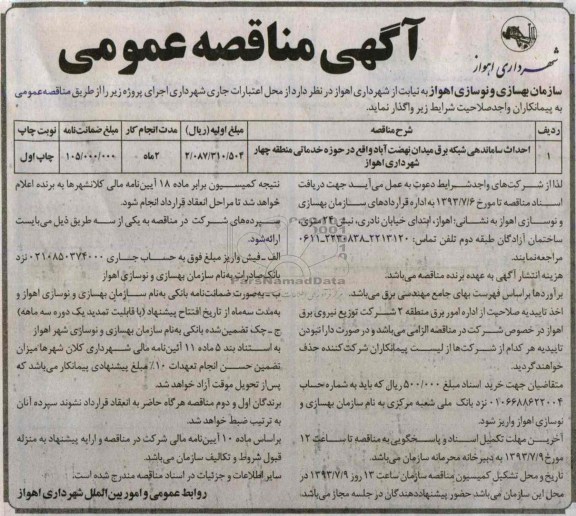 آگهی مناقصه عمومی
شهرداری اهواز
سازمان بهسازی و نوسازی اهواز به نیابت از شهرداری اهواز در نظر دارد از محل اعتبارات جاری شهرداری اجرای پروژه زیر را از طریق مناقصه عمومی
به پیمانکاران واجد صلاحیت شرایط زیر واگذار نماید.
ردیف شرح مناقصه مبلغ اولیه (ریال) مدت انجام کار مبلغ ضمانت‌نامه نوبت چاپ
۱ احداث ساماندهی شبکه برق میدان نهضت آباد واقع در حوزه خدماتی منطقه چهار ۲/۰۸۷/۳۱۰/۵۰۴ ۲ماه ۱۰۵/۰۰۰/۰۰۰ چاپ اول
شهرداری اهواز
لذا از شرکت‌های واجد شرایط دعوت به عمل می‌آید جهت دریافت
اسناد مناقصه تا مورخ ۱۳۹۳/۷/۶ به اداره قراردادهای سازمان بهسازی
و نوسازی اهواز به نشانی: اهواز، ابتدای خیابان نادری، نبش ۲۴متری،
ساختمان آزادگان طبقه دوم تلفن تماس: ۲۲۱۳۱۲۰-۲۲۳۰۸۳۸-۰۶۱۱
مراجعه نمایند.
هزینه انتشار آگهی به عهده برنده مناقصه می‌باشد.
برآوردها براساس فهرست بهای جامع مهندسی برق می‌باشد.
اخذ تاییدیه صلاحیت از اداره امور برق منطقه ۲ شرکت توزیع نیروی برق
اهواز در خصوص شرکت در مناقصه الزامی می‌باشد و در صورت دارا نبودن
تاییدیه هر کدام از شرکت‌ها از لیست پیمانکاران شرکت کننده حذف
خواهند گردید.
متقاضیان جهت خرید اسناد مبلغ ۵۰۰/۰۰۰ ریال که باید به شماره حساب
۰۱۰۶۶۸۸۶۲۲۰۰۴ نزد بانک ملی شعبه مرکزی به نام سازمان بهسازی و
نوسازی اهواز واریز شود.
آخرین مهلت تکمیل اسناد و پاسخگویی به مناقصه تا ساعت ۱۲
مورخ ۱۳۹۳/۷/۹ به دبیرخانه محرمانه سازمان می‌باشد.
تاریخ و محل تشکیل کمیسیون مناقصه سازمان ساعت ۱۳ روز ۱۳۹۳/۷/۹ در
محل این سازمان می‌باشد. حضور پیشنهاد دهندگان در جلسه مجاز می‌باشد.
نتیجه کمیسیون برابر ماده ۱۸ آیین‌نامه مالی کلانشهرها به برنده اعلام
خواهد شد تا مراحل انعقاد قرارداد انجام شود.
سپرده‌های شرکت در مناقصه به یکی از سه طریق ذیل می‌بایست
ارائه شود.
الف-فیش واریز مبلغ فوق به حساب جاری ۰۲۱۰۸۵۰۳۷۴۰۰۰ نزد
بانک صادرات به نام سازمان بهسازی و نوسازی اهواز
ب-به صورت ضمانت‌نامه بانکی به نام سازمان بهسازی و نوسازی اهواز و
به مدت سه ماه از تاریخ افتتاح پیشنهاد (با قابلیت تمدید یک دوره سه ماهه)
ج-چک تضمین شده بانکی به نام سازمان بهسازی و نوسازی شهر اهواز
به استناد بند ۵ ماده ۱۱ آئین‌نامه مالی شهرداری کلان شهرها میزان
تضمین حسن انجام تعهدات ۱۰٪ مبلغ پیشنهادی پیمانکار می‌باشد که
پس از تحویل موقت آزاد خواهد شد.
برندگان اول و دوم مناقصه هرگاه حاضر به انعقاد قرارداد نشوند سپرده آنان
به ترتیب ضبط خواهد شد.
براساس ماده ۱۰ آیین‌نامه مالی شرکت در مناقصه و ارایه پیشنهاد به منزله
قبول شروط و تکالیف سازمان می‌باشد.
سایر اطلاعات و جزئیات در اسناد مناقصه مندرج شده است.
روابط عمومی و امور بین‌الملل شهرداری اهواز
ParsNamadData